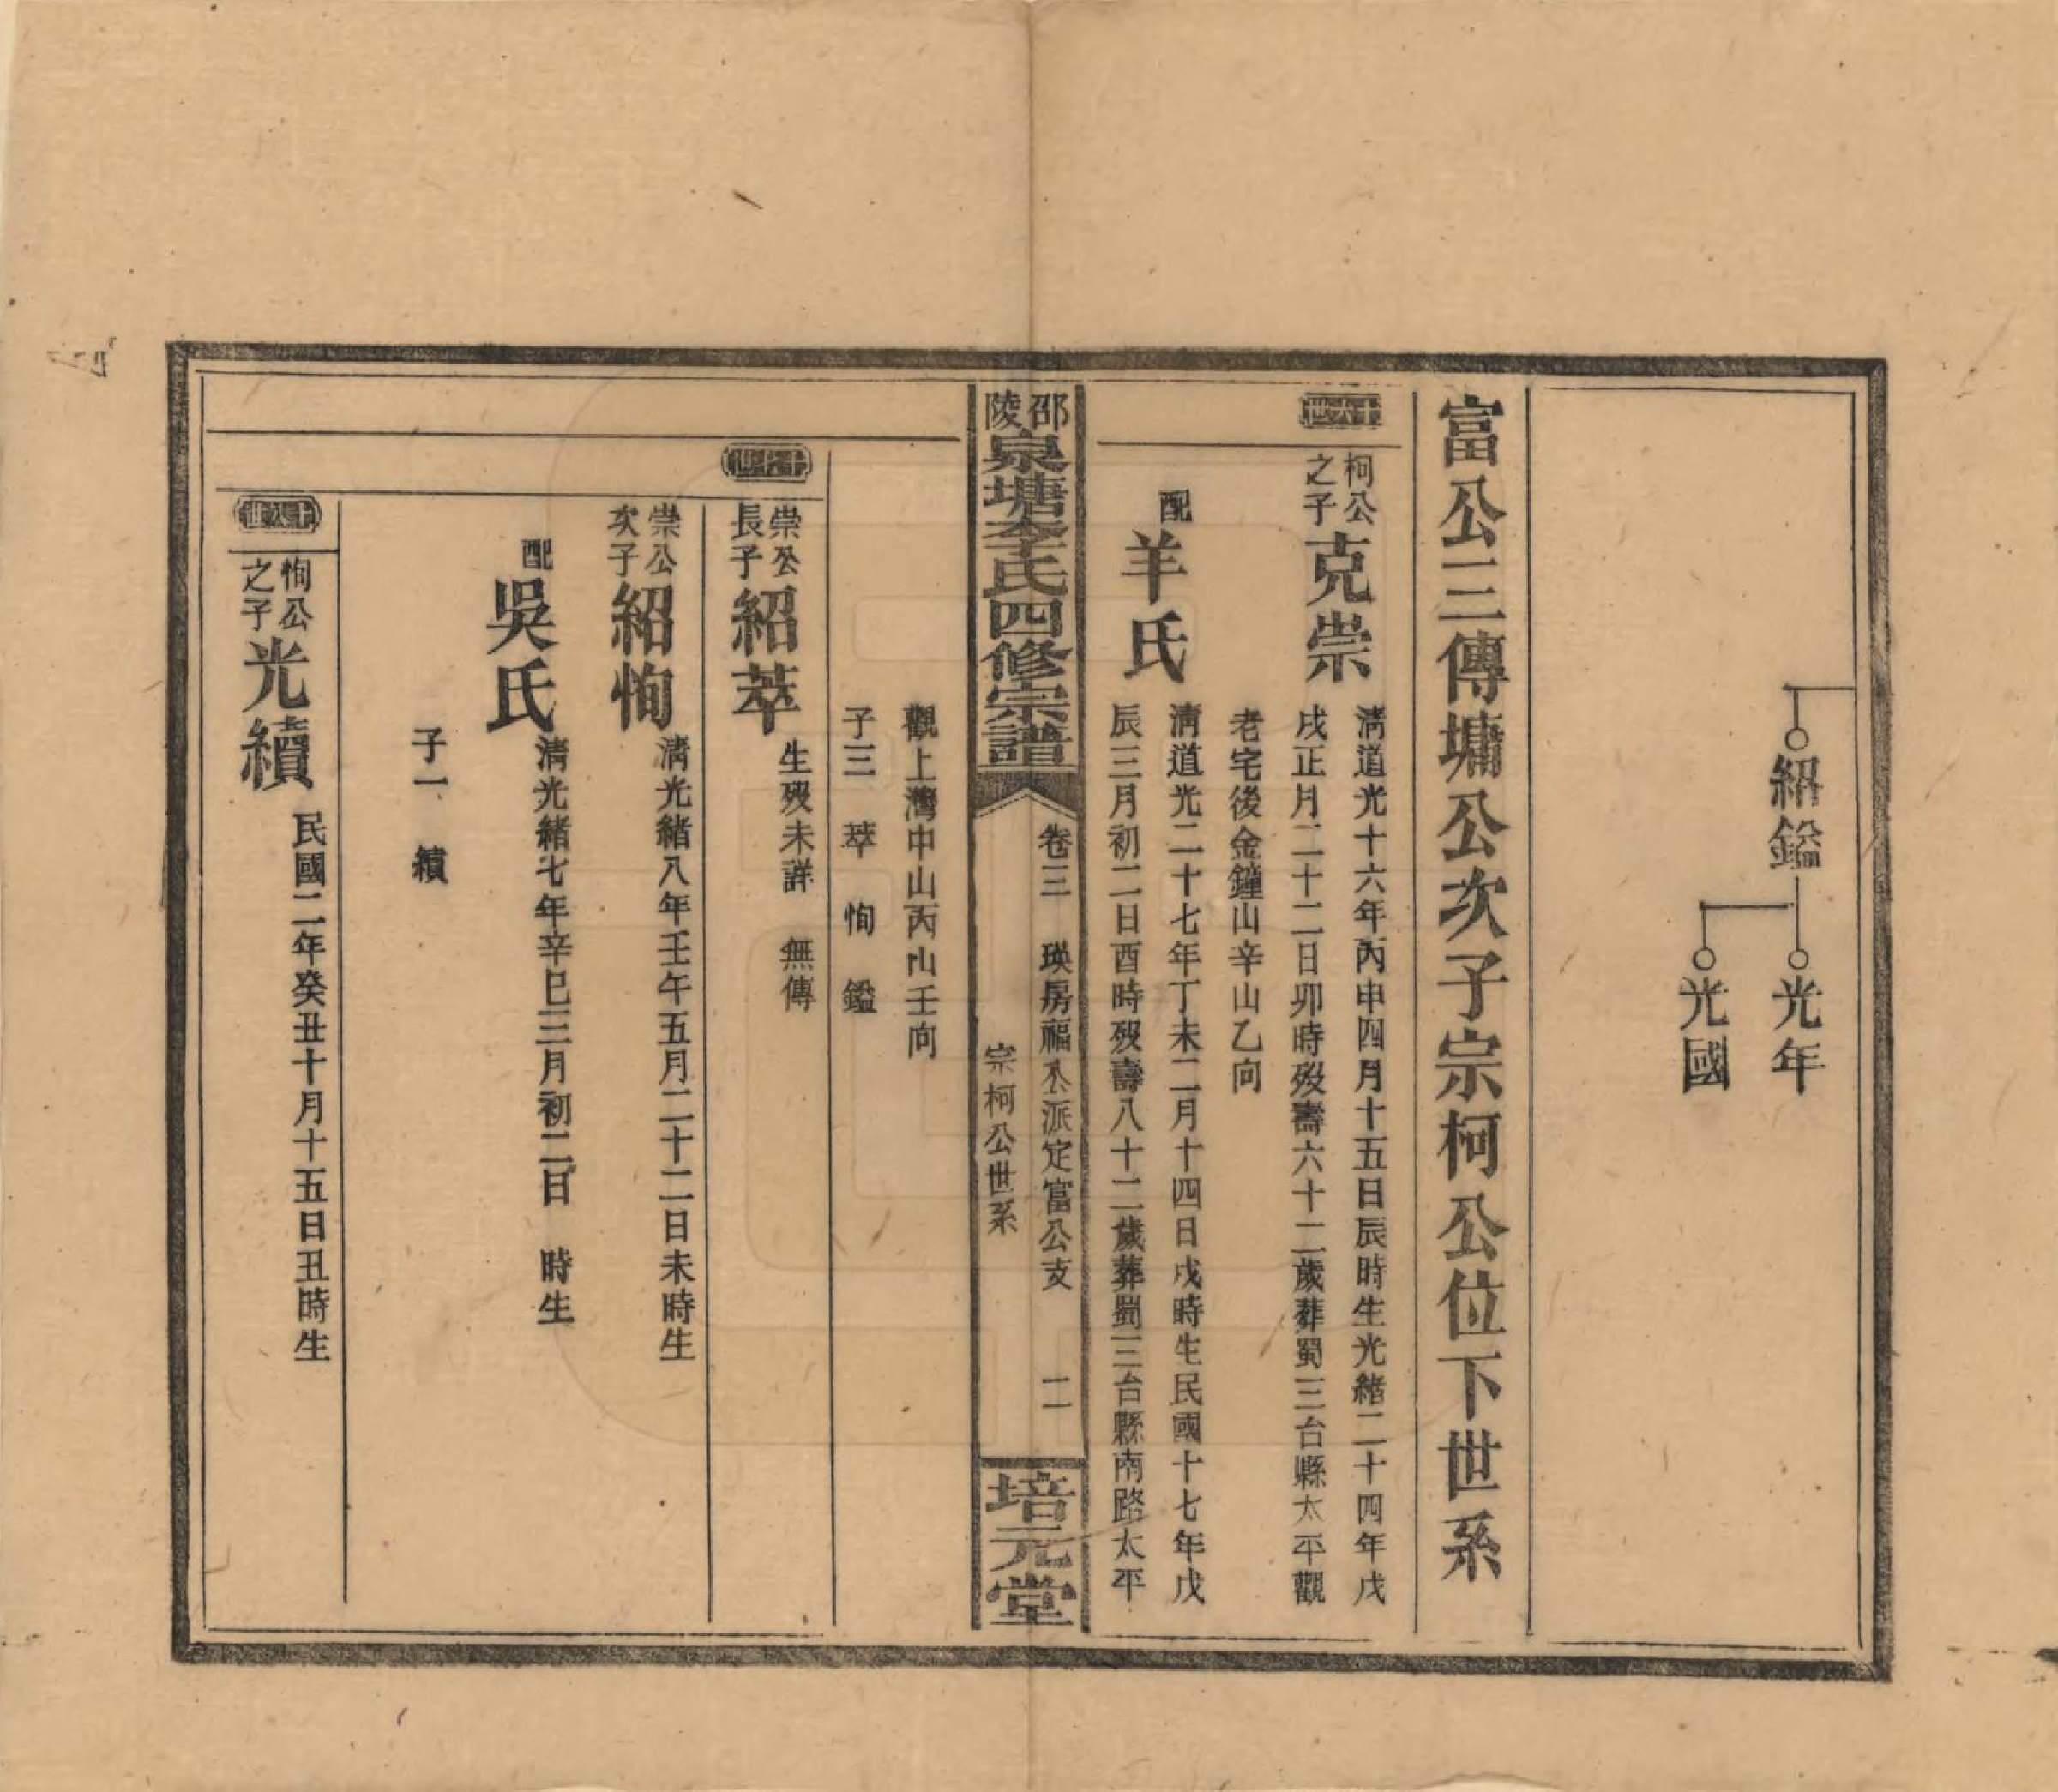 紹鎰
光年
光國
富公三傳墉公次子宗柯公位下世系
十六世
柯公之子克崇
清道光十六年丙申四月十五日辰時生光緒二十四年戊
戌正月二十二日卯時歿壽六十二歲葬蜀三台縣太平觀
老宅後金鐘山辛山乙向
配羊氏
清道光二十七年丁未二月十四日戌時生民國十七年戊
辰三月初二日酉時歿壽八十二歲葬蜀三台縣南路太平
邵陵泉塘李氏四修宗譜
卷三 瑛房福公派定富公支 二
宗柯公世系
培元堂
觀上灣中山丙山壬向
子三 萃 恂 鎰
十七世
崇公長子紹萃
生歿未詳 無傳
崇公次子紹恂
清光緒八年壬午五月二十二日未時生
配吳氏
清光緒七年辛巳三月初二日 時生
子一 續
十八世
恂公之子光續
民國二年癸丑十月十五日丑時生